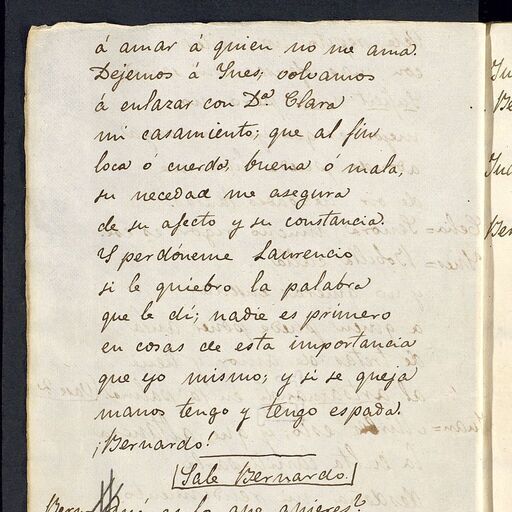 á amar á quien no me ama.
Dejemos á Ynes; volvamos
á enlazar con D.ª Clara
mi casamiento; que al fin
loca ó cuerda, buena ó mala,
su necedad me asegura
de su afecto y su constancia.
Y perdóneme Laurencio
si le quiebro la palabra
que le dí; nadie es primero
en cosas de esta importancia
que yo mismo; y si se queja
manos tengo y tengo espada.
¡Bernardo!
Sale Bernardo.
es lo que quieres?